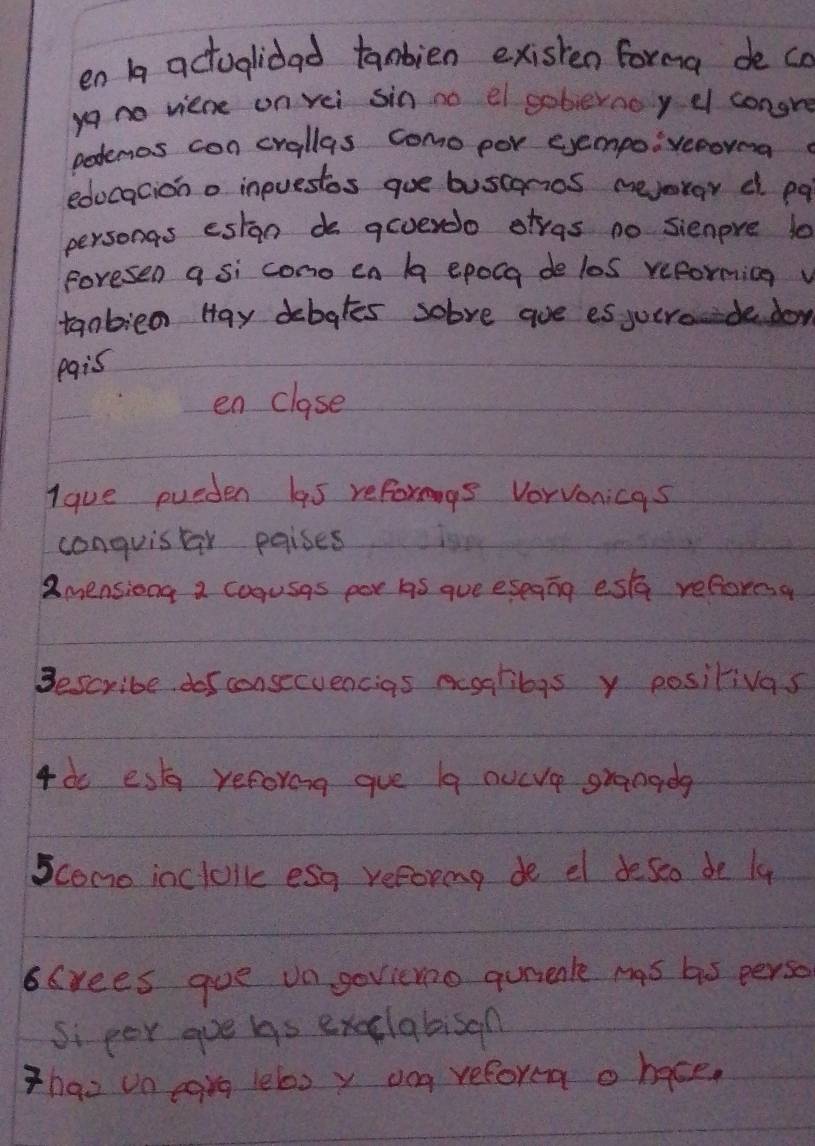 en la actualidad tanbien existen forma de co
ya no viene un rei sin no el gobierno y el congre
podemos con crallas como por ejempo: reforma
educación o inpuestos que buscamos mejorar el pa
personas estan de acuerdo otras no sienpre lo
foresen a si como en la epoca de los reformica v
tanbien Hay debates sobre que es de don
pais
en clase
1 que pueden las reformas Vorvonicas
conquistar paises
2 mensiona 2 coausas por las que españa esta reforma
3 escribe dos consecuencias negatibas y positivas
4 de esta reforma que la nueva granada
5 como incluile esa reforma de el deseo de la
6 Crees que un govierno aumente mas las perso
si por que las exclabisan
7 has un para lelo y una reforma o hace.